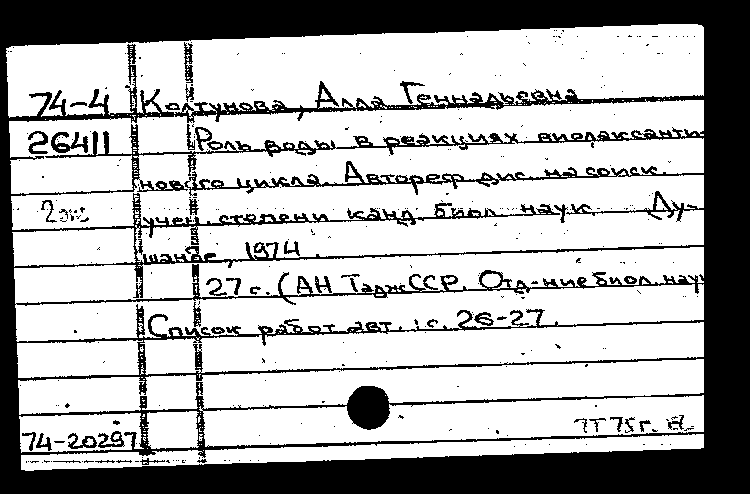 74-4 Колтунова, Алла Геннадьевна
26411 Роль воды в реакциях виолаксанти-
нового цикла. Автореф. дис. на соиск.
2 экз учен. степени канд. биол. наук. Ду-
шанбе, 1974.
27 с. (АН ТаджССР. Отд-ние биол. наук
Список работ авт.: с. 26-27.
74-20297
75 г.